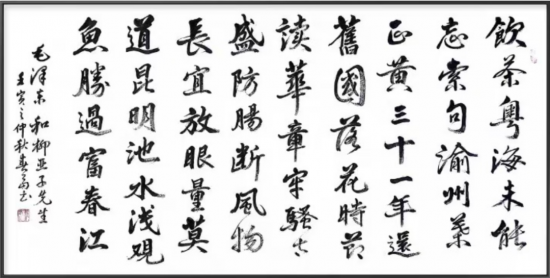 飲茶粵海未能
忘索句渝州葉
正黃三十一年還
舊國落花時節
讀華章牢騷太
盛防腸斷風物
長宜放眼量莫
道昆明池水浅觀
魚勝過富春江
毛澤东和柳亚子先生
壬寅之仲秋春书